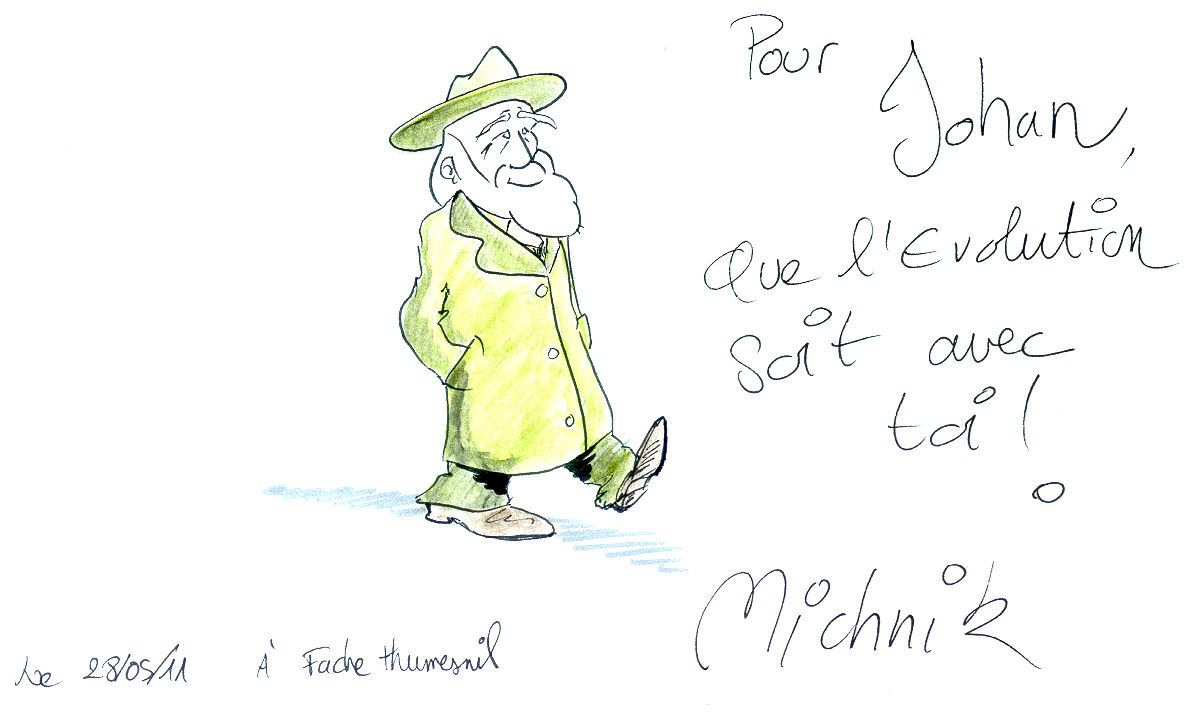 Pour
Johan,
Que l'Evolution
soit avec
toi!
Michnik
Le 28/05/11 À Fache thumesnil